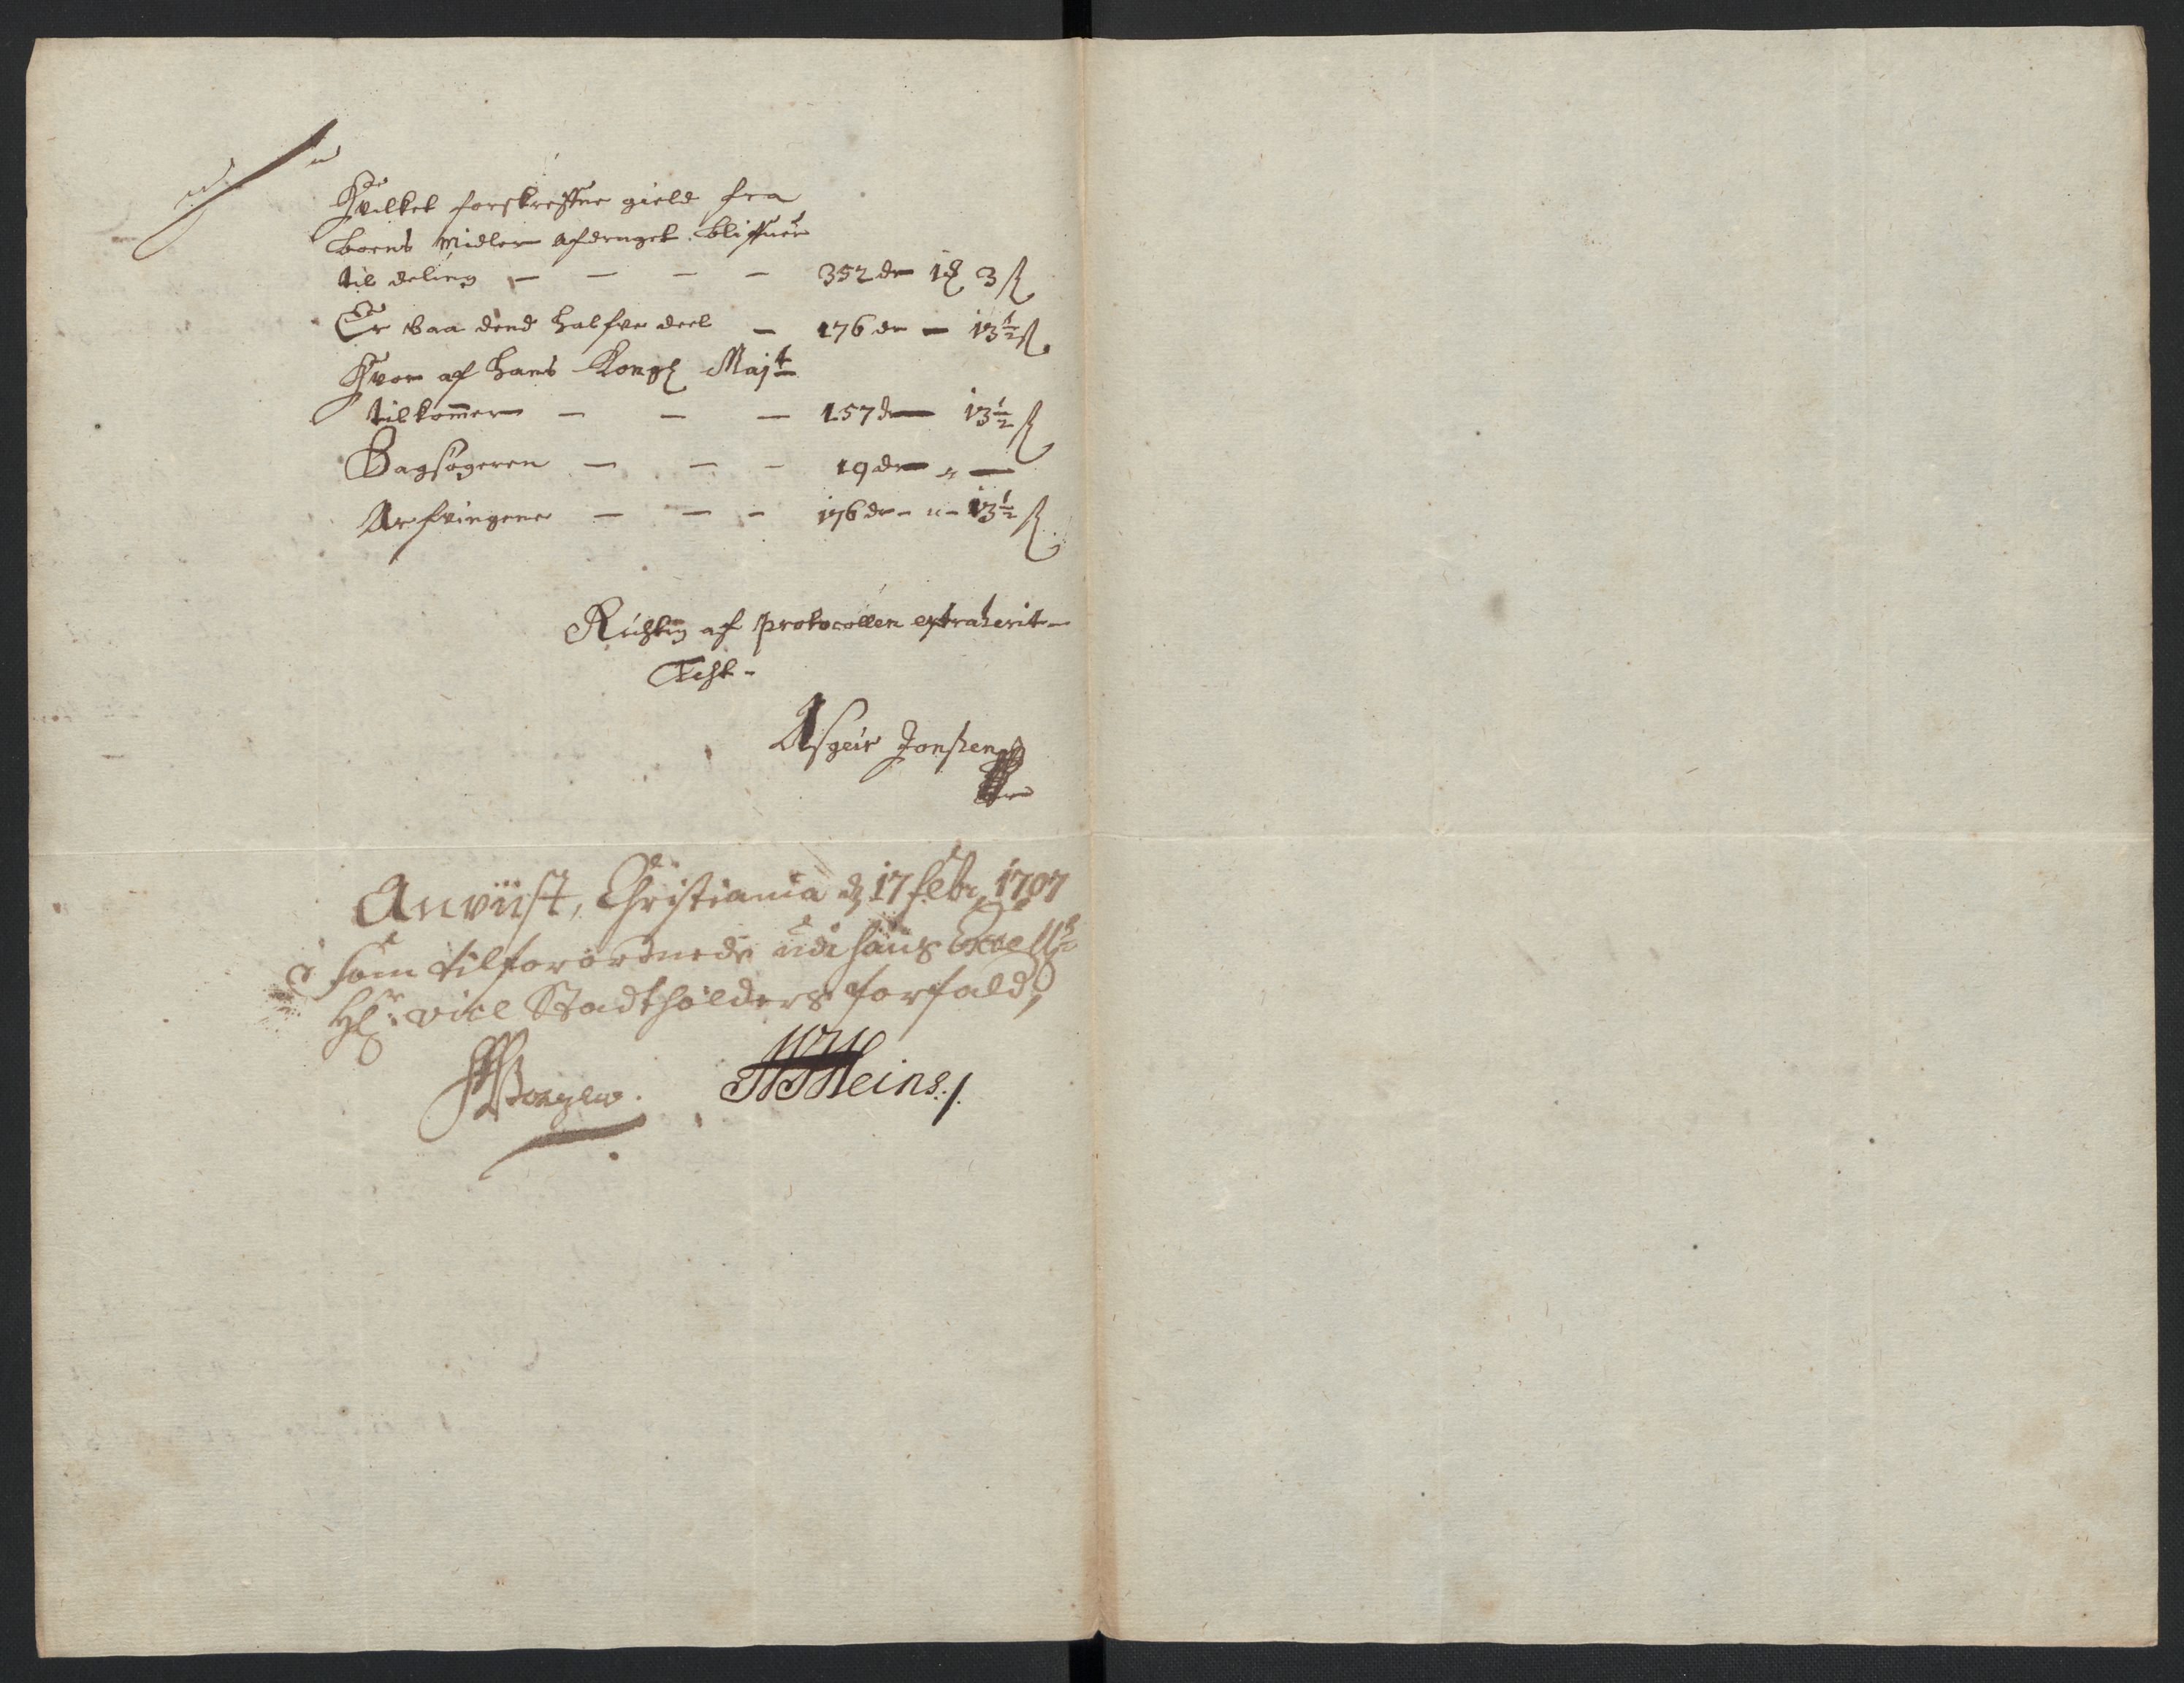 Hvilket forskrefne gield fra
boens Midler afdraget blifuer
til deling — — — — 352 dr 1 3 ß
Er baa dend halfve deel — 176 dr — 13½ ß
Hvor af hans Kongl Majt
tilkommer — — — 157 dr — 13½ ß
Bagsøgeren — — — 19 dr „ —
Arfvingene — — — 176 dr - „ - 13½ ß
Rigtig af protocollen extraherit
Test -
Asgeir Jonsen
Anviist, Christiania d 17 febr 1707
som tilforordnede udi hans Excell
H vice Stadtholders forfald,
Heins ./.